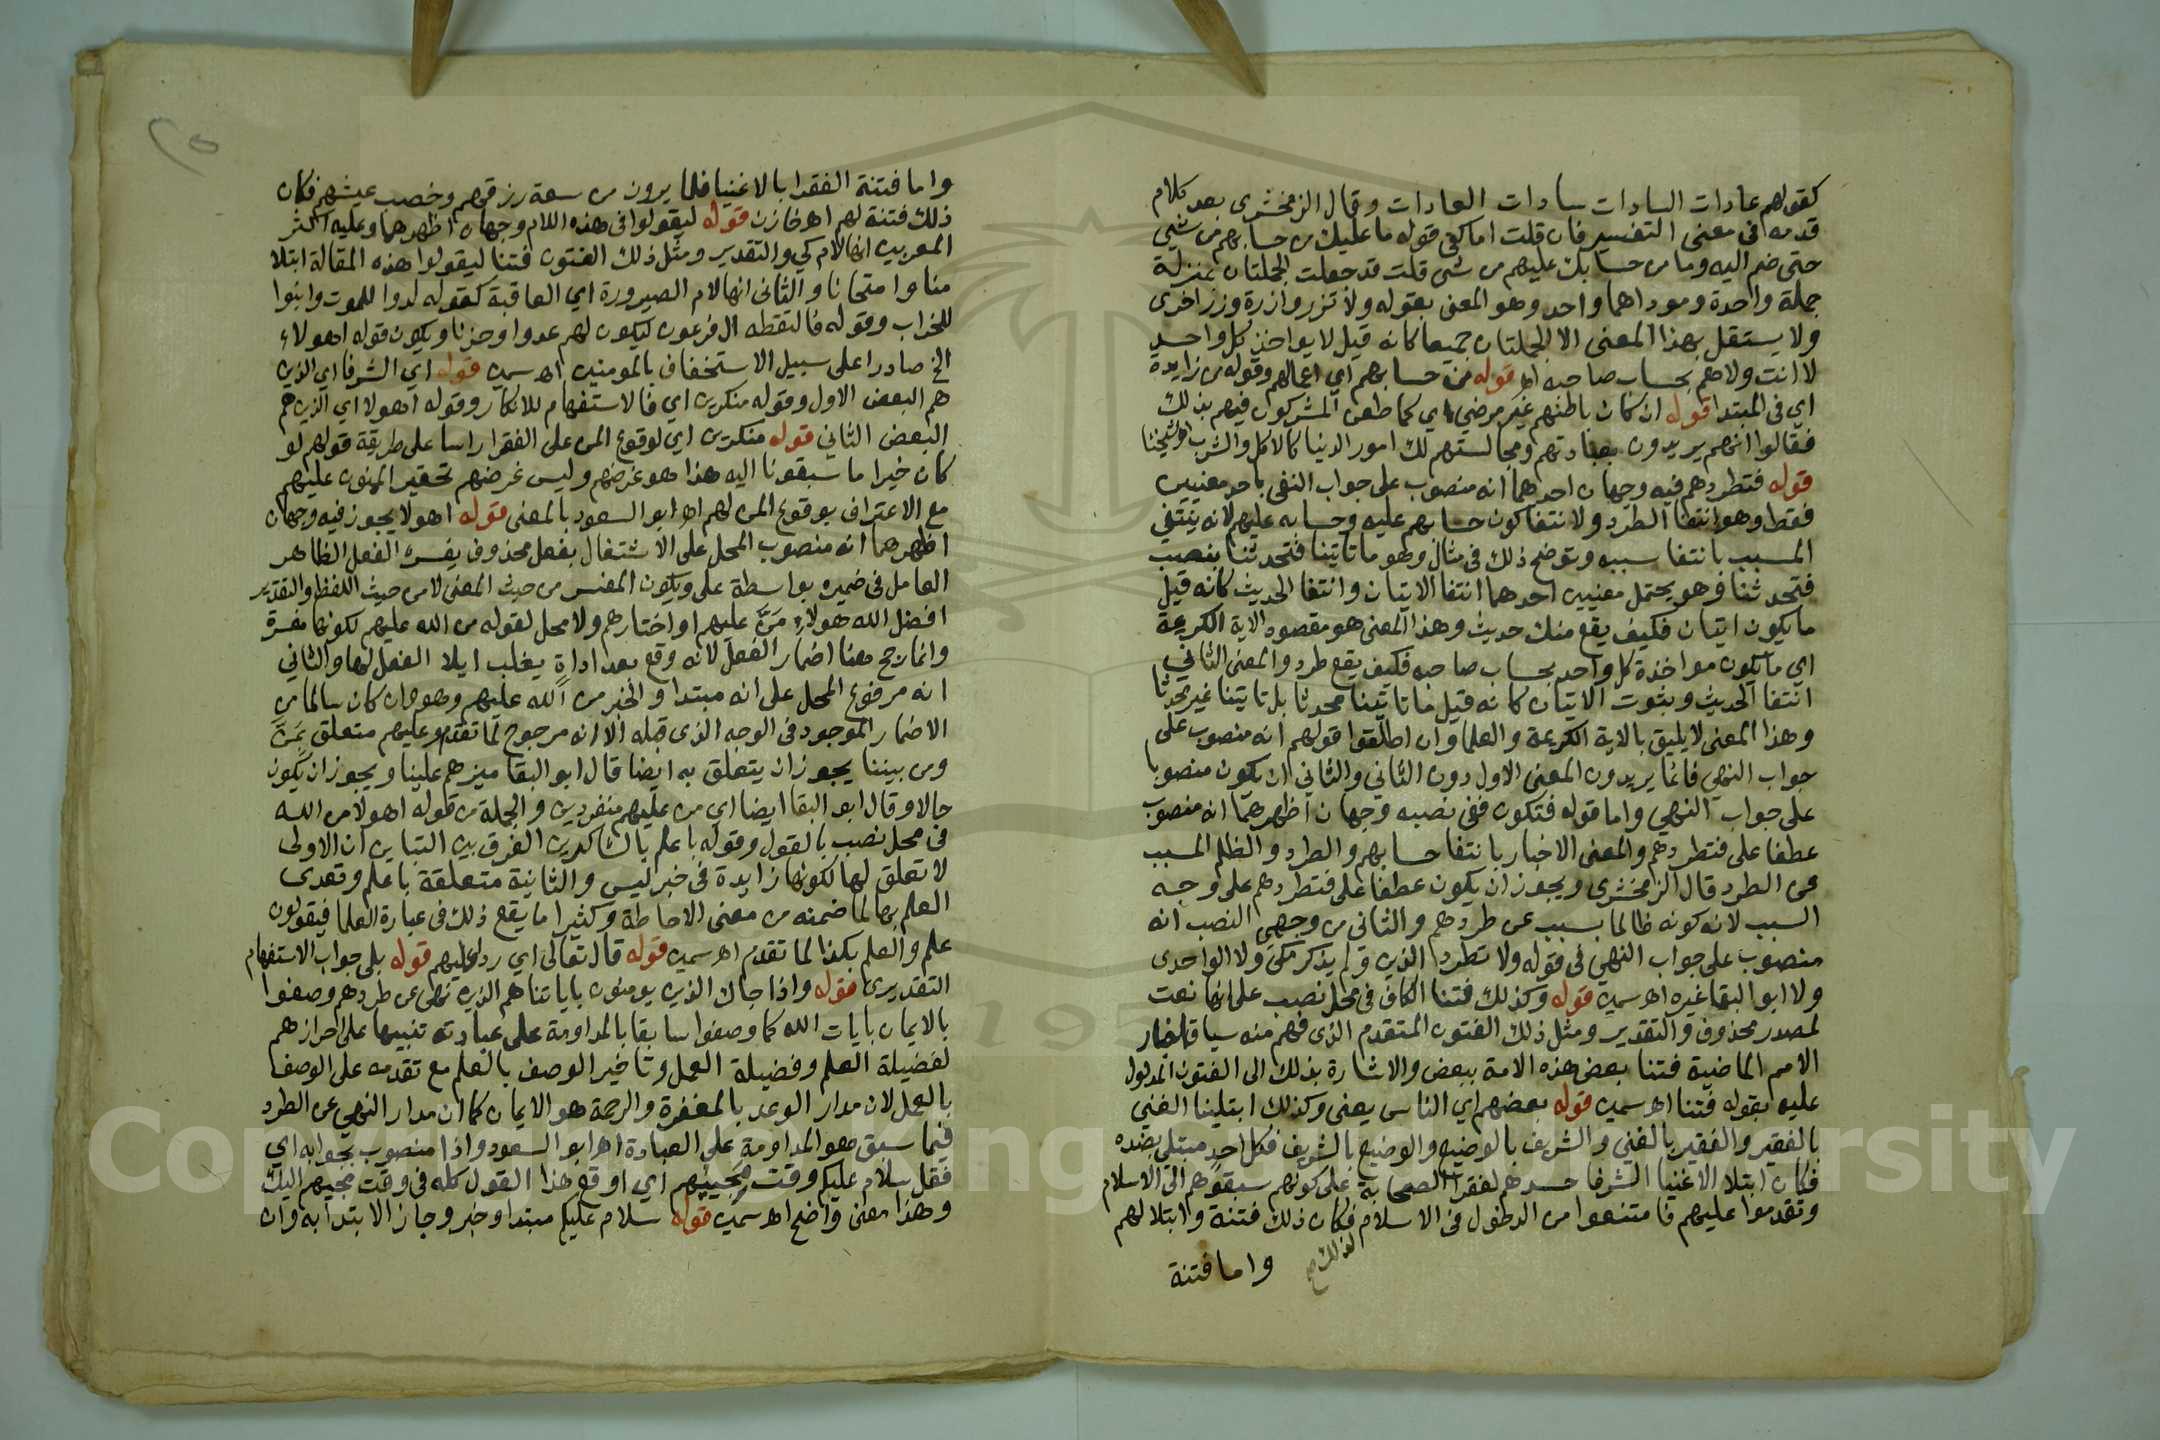 كقولهم عادات السادات سادات العادات وقال الزمخشري بعد كلام
قدمه في معنى التفسير فان قلت اما كفى قوله ما عليك من حسابهم من شي
حتى ضم اليه وما من حسابك عليهم من شي قلت قد جعلت الجملتان بمنزلة
جملة واحدة وموداهما واحد وهو المعنى بقوله ولا تزر وازرة وزر اخرى
ولا يستقل بهذا المعنى الا الجملتان جميعا كانه قيل لا يواخذ كل واحد
لا انت ولا هم بحساب صاحبه اهـ قوله من حسابهم اي اعمالهم وقوله من زايدة
اي في المبتدا قوله ان كان باطنهم غير مرضي اي كما طعن المشركون فيهم بذلك
فقالوا انهم يريدون بعبادتهم ومجالستهم لك امور الدنيا كالاكل والشرب اهـ شيخنا
قوله فتطردهم فيه وجهان احدهما انه منصوب على جواب النفي باحد معنيين
فقط وهو انتفا الطرد ولانتفا كون حسابهم عليه وحسابه عليهم لانه ينتفي
المسبب بانتفا سببه وتوضح ذلك في مثال وهو ما تاتينا فتحدثنا بنصب
فتحدثنا فهو يحتمل معنيين احدهما انتفا الاتيان وانتفا الحديث كانه قيل
ما يكون اتيان فكيف يقع منك حديث وهذا المعنى هو مقصود الاية الكريمة
اي ما يكون مواخذة كل واحد بحساب صاحبه فكيف يقع طرد والمعنى الثاني
انتفا الحديث وثبوت الاتيان كانه قيل ما تاتينا محدثا بل تاتينا غير محدثا
وهذا المعنى لا يليق بالاية الكريمة والعلما وان اطلقوا قولهم انه منصوب على
جواب النهي فانما يريدون المعنى الاول دون الثاني والثاني ان يكون منصوبا
على جواب النهي واما قوله فتكون ففي نصبه وجهان اظهرهما انه منصوب
عطفا على فتطردهم والمعنى الاخبار بانتفا حسابهم والطرد والظلم المسبب
عن الطرد قال الزمخشري ويجوز ان يكون عطفا على فتطردهم على وجه
السبب لانه كونه ظالما بسبب عن طردهم والثاني من وجهي النصب انه
منصوب على جواب النهي في قوله ولا تطرد الذين ولم يذكر مكي ولا الواحدي
ولا ابو البقا غيره اهـ سمين قوله وكذلك فتنا الكاف في محل نصب على انها نعت
لمصدر محذوف والتقدير ومثل ذلك الفتون المتقدم الذي فهم من سياق اخبار
الامم الماضية فتنا بعض هذه الامة ببعض والاشارة بذلك الى الفتون المدلول
عليه بقوله فتنا اهـ سمين قوله بعضهم اي الناس يعني وكذلك ابتلينا الغني
بالفقير والفقير بالغني والشريف بالوضيع والوضيع بالشريف فكل احد مبتلى بضده
فكان ابتلا الاغنيا الشرفا حسدهم لفقرا الصحابة على كونهم سبقوهم الى الاسلام
وتقدموا عليهم فامتنعوا من الدخول في الاسلام لذلك فكان ذلك فتنة وابتلا لهم
واما فتنة
واما فتنة الفقرا بالاغنيا فلما يرون من سعة رزقهم وخصب عيشهم فكان
ذلك فتنة لهم اهـ خازن قوله ليقولوا في هذه اللام وجهان اظهرهما وعليه اكثر
المعربين انها لام كي والتقدير ومثل ذلك الفتون فتنا ليقولوا هذه المقالة ابتلا
منا وامتحانا والثاني انها لام الصيرورة اي العاقبة كقوله لدوا للموت وابنوا
للخراب وقوله فالتقطه ال فرعون ليكون لهم عدوا وحزنا ويكون قوله اهولاء
الخ صادرا على سبيل الاستخفاف بالمومنين اهـ سمين قوله اي الشرفا اي الذين
هم البعض الاول وقوله منكرين اي فالاستفهام للانكار وقوله اهولا اي الذين هم
البعض الثاني قوله منكرين اي لوقوع المن على الفقرا راسا على طريقة قولهم لو
كان خيرا ما سبقونا اليه هذا هو غرضهم وليس غرضهم تحقير الممنون عليهم
مع الاعتراف بوقوع المن لهم اهـ ابو السعود بالمعنى قوله اهولا يجوز فيه وجهان
اظهرهما انه منصوب المحل على الاشتغال بفعل محذوف يفسره الفعل الظاهر
العامل في ضميره بواسطة على ويكون المفسر من حيث المعنى لا من حيث اللفظ والتقدير
افضل الله هولاء مَنَّ عليهم او اختارهم ولا محل لقوله من الله عليهم لكونها مفسرة
وانما رجح هنا اضمار الفعل لانه وقع بعد اداة يغلب ايلا الفعل لها والثاني
انه مرفوع المحل على انه مبتدا والخبر من الله عليهم وهو وان كان سالما من
الاضمار الموجود في الوجه الذي قبله الا انه مرجوح لما تقدم وعليهم متعلق بمَنَّ
ومن بيننا يجوز ان يتعلق به ايضا قال ابو البقا ميزهم علينا ويجوز ان يكون
حالا وقال ابو البقا ايضا اي من عليهم منفردين والجملة من قوله اهولا من الله
في محل نصب بالقول وقوله باعلم بالشاكرين الفرق بين الباين ان الاولى
لا تعلق لها لكونها زايدة في خبر ليس والثانية متعلقة باعلم وتعدى
العلم بها لما ضمنه من معنى الاحاطة وكثيرا ما يقع ذلك في عبارة العلما فيقولون
علم والعلم بكذا لما تقدم اهـ سمين قوله قال تعالى اي ردا عليهم قوله بلى جواب الاستفهام
التقديري قوله واذا جاك الذين يومنون باياتنا هم الذين نهى عن طردهم وصفوا
بالايمان بايات الله كما وصفوا سابقا بالمداومة على عبادته تنبيها على احرازهم
لفضيلة العلم وفضيلة العمل وتاخير الوصف بالعلم مع تقدمه على الوصف
بالعمل لان مدار الوعد بالمغفرة والرحمة هو الايمان كما ان مدار النهي عن الطرد
فيما سبق هو المداومة على العبادة اهـ ابو السعود واذا منصوب بجوابه اي
فقل سلام عليكم وقت مجيئهم اي اوقع هذا القول كله في وقت مجيئهم اليك
وهذا معنى واضح اهـ سمين قوله سلام عليكم مبتدا وخبر وجاز الابتدا به وان